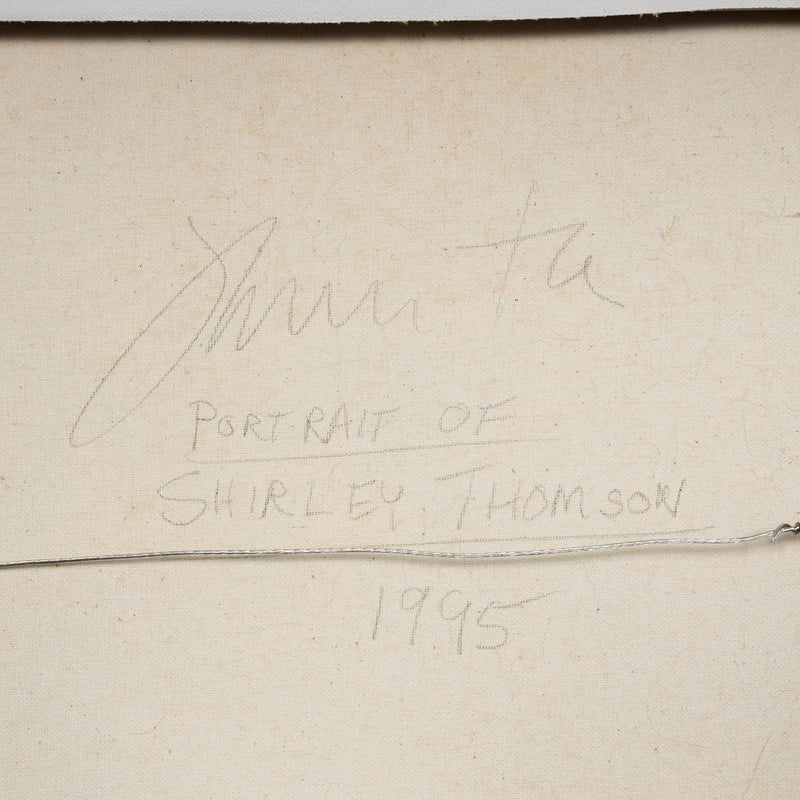 PORTRAIT OF
SHIRLEY THOMSON
1995